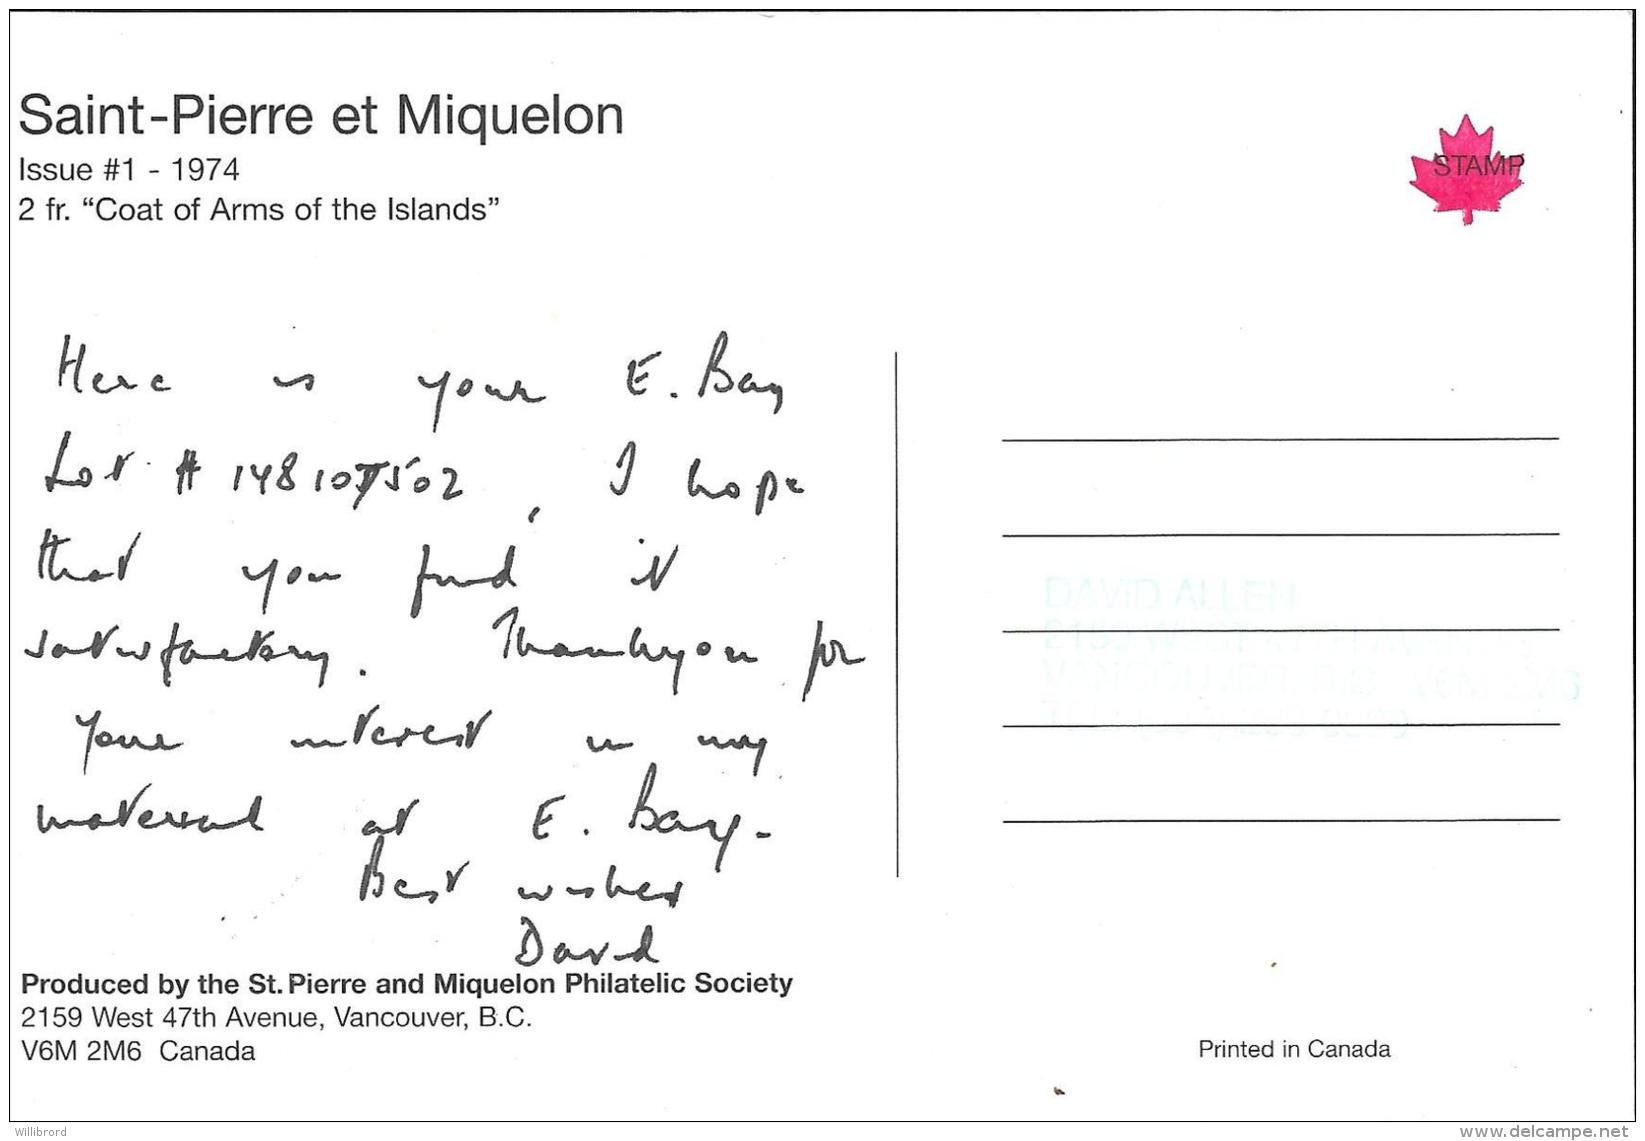 Saint-Pierre et Miquelon
Issue #1 - 1974
2 fr. “Coat of Arms of the Islands”
STAMP
Here is your E. Bay
Lot # , I hope
that you find it
satisfactory. Thankyou for
your interest in my
material at E. Bay-
Best wishes
David
DAVID ALLEN
Produced by the St. Pierre and Miquelon Philatelic Society
2159 West 47th Avenue, Vancouver, B.C.
V6M 2M6 Canada
Printed in Canada
Willibrord
www.delcampe.net